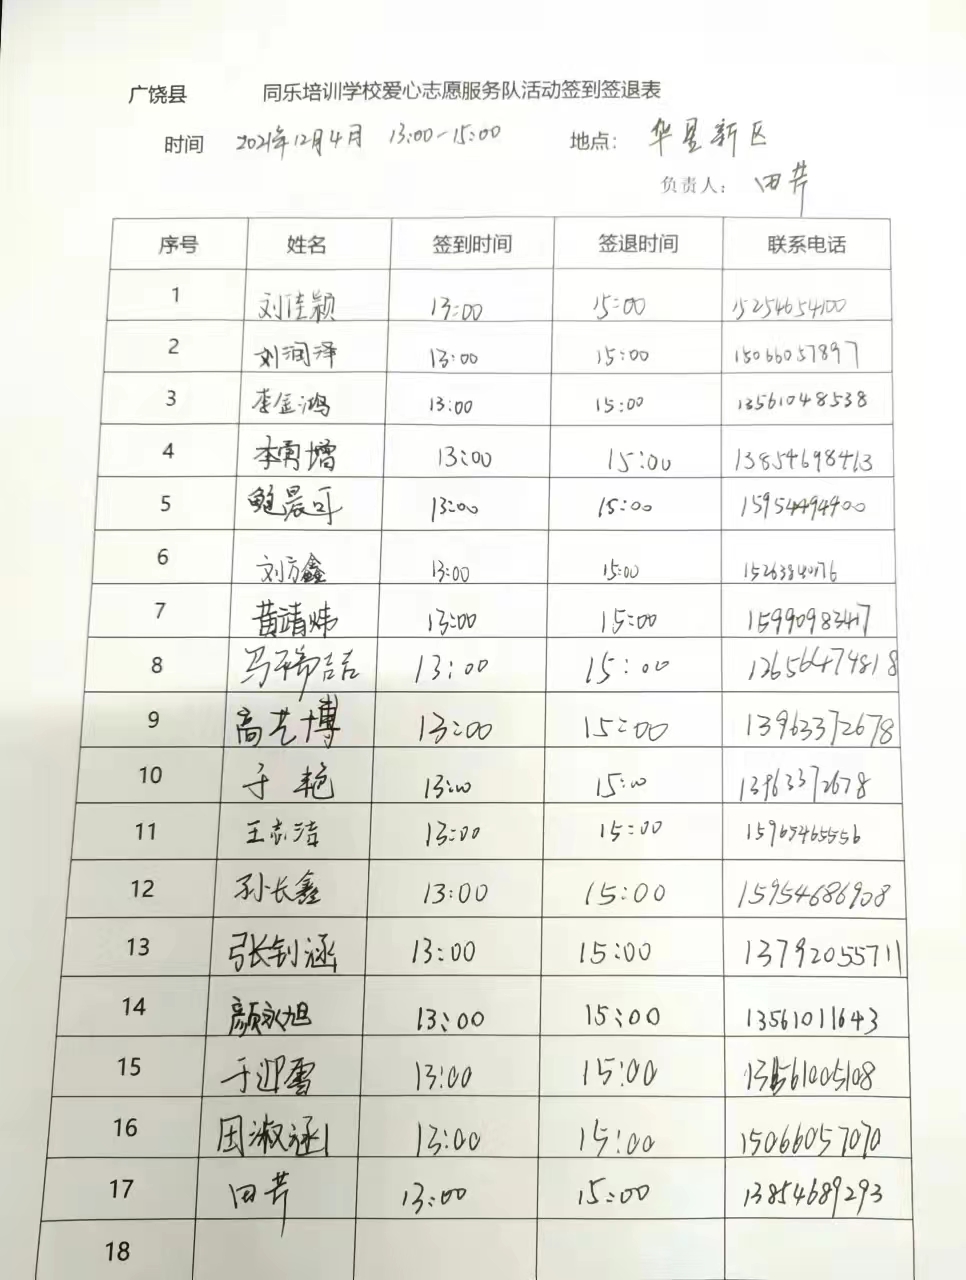 广饶县 同乐培训学校爱心志愿服务队活动签到签退表
时间 2021年12月4月 13:00-15:00 地点: 华星新区
负责人: 田芹
序号 姓名 签到时间 签退时间 联系电话
1 刘佳颖 13:00 15:00 15254654100
2 刘润泽 13:00 15:00 15066057897
3 李金鸿 13:00 15:00 13561048538
4 李勇增 13:00 15:00 13854698413
5 鲍晨 13:00 15:00 15954494900
6 刘方鑫 13:00 15:00
7 黄靖炜 13:00 15:00 15990983417
8 冯稀喆 13:00 15:00 12656474818
9 高艺博 13:00 15:00 13963372678
10 于艳 13:00 15:00 13963372678
11 王志洁 13:00 15:00 15965465556
12 孙长鑫 13:00 15:00 15954686908
13 张钊涵 13:00 15:00 13792055711
14 颜永旭 13:00 15:00 13561011643
15 于迎雪 13:00 15:00 13561005108
16 田淑涵 13:00 15:00 15066057070
17 田芹 13:00 15:00 13854689293
18